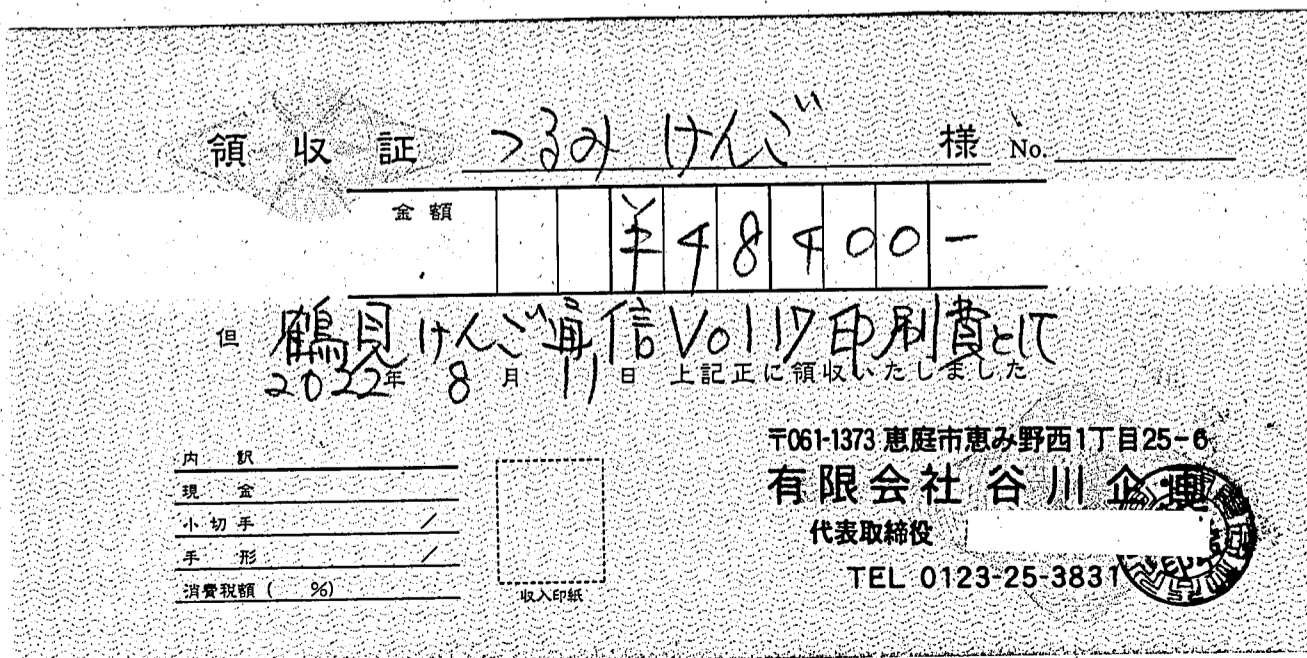 領収証 つるみ けんご 様 No.
金額 ¥48400-
但 鶴見けんご通信Vol17印刷費として
2022年 8月 11日 上記正に領収いたしました
内訳
現金
小切手 /
手形 /
消費税額( %)
収入印紙
〒061-1373 恵庭市恵み野西1丁目25-6
有限会社 谷川企画
代表取締役
TEL 0123-25-3831